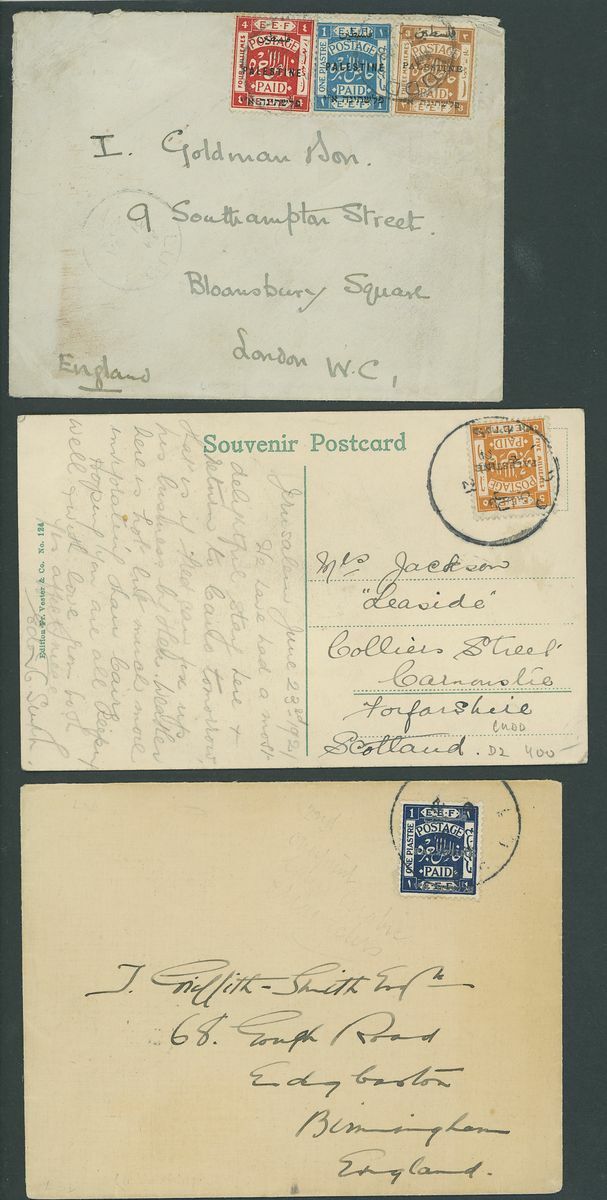 4 E.E.F ٤
POSTAGE
PALESTINE
PAID
FOUR MILLIEMES
1 E.E.F ١
فلسطين
POSTAGE
PALESTINE
PAID
ONE PIASTRE
E.E.F
فلسطين
POSTAGE
PALESTINE
PAID
E.E.F
I. Goldman Son.
9 Southampton Street.
Bloomsbury Square
London W.C,
England
Souvenir Postcard
Edition Fr. Vester & Co. No. 124
Jerusalem June 23rd 1921
We have had a most
delightful stay here &
return to Cairo tomorrow,
that is if Fred can fix up
his business by then. Weather
here is hot but much more
than Cairo
Hoping you are all keeping
well & with love from both
Yrs affectionate
Smith.
POSTAGE
PAID
21
Mrs Jackson
"Leaside"
Colliers Street
Carnoustie
Forfarshire
Scotland.
D2 400-
1 E.E.F ١
POSTAGE
PAID
ONE PIASTRE
J. Griffith-Smith Esqre
68. Gough Road
Edgbaston
Birmingham
England.